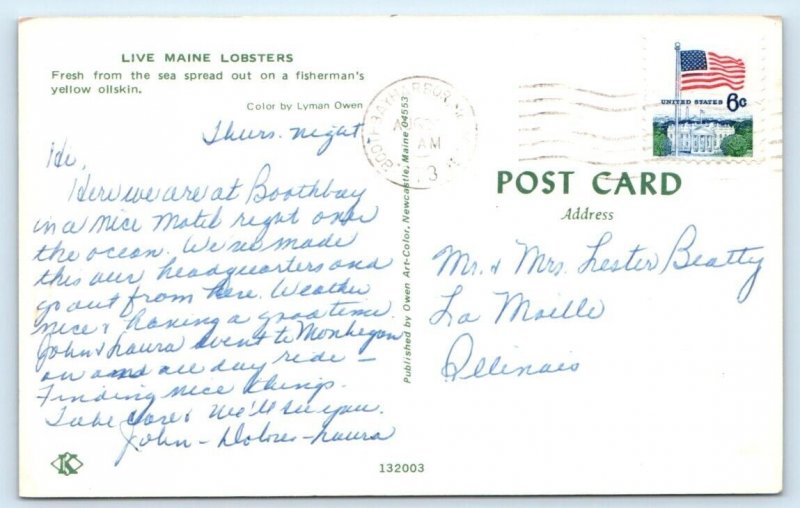 LIVE MAINE LOBSTERS
Fresh from the sea spread out on a fisherman's
yellow oilskin.
Color by Lyman Owen
Thurs. night
Hi,
Here we are at Boothbay
in a nice motel right over
the ocean. We've made
this our headquarters and
go out from here. Weather
nice & having a good time.
John & Laura went to Monhegan
on an all day ride –
Finding nice things.
Take care & we'll see you.
John – Dolores – Laura
132003
Published by Owen Art-Color, Newcastle, Maine 04553
BOOTHBAY HARBOR
AM
UNITED STATES 6c
POST CARD
Address
Mr. & Mrs. Lester Beatty
La Moille
Illinois
K